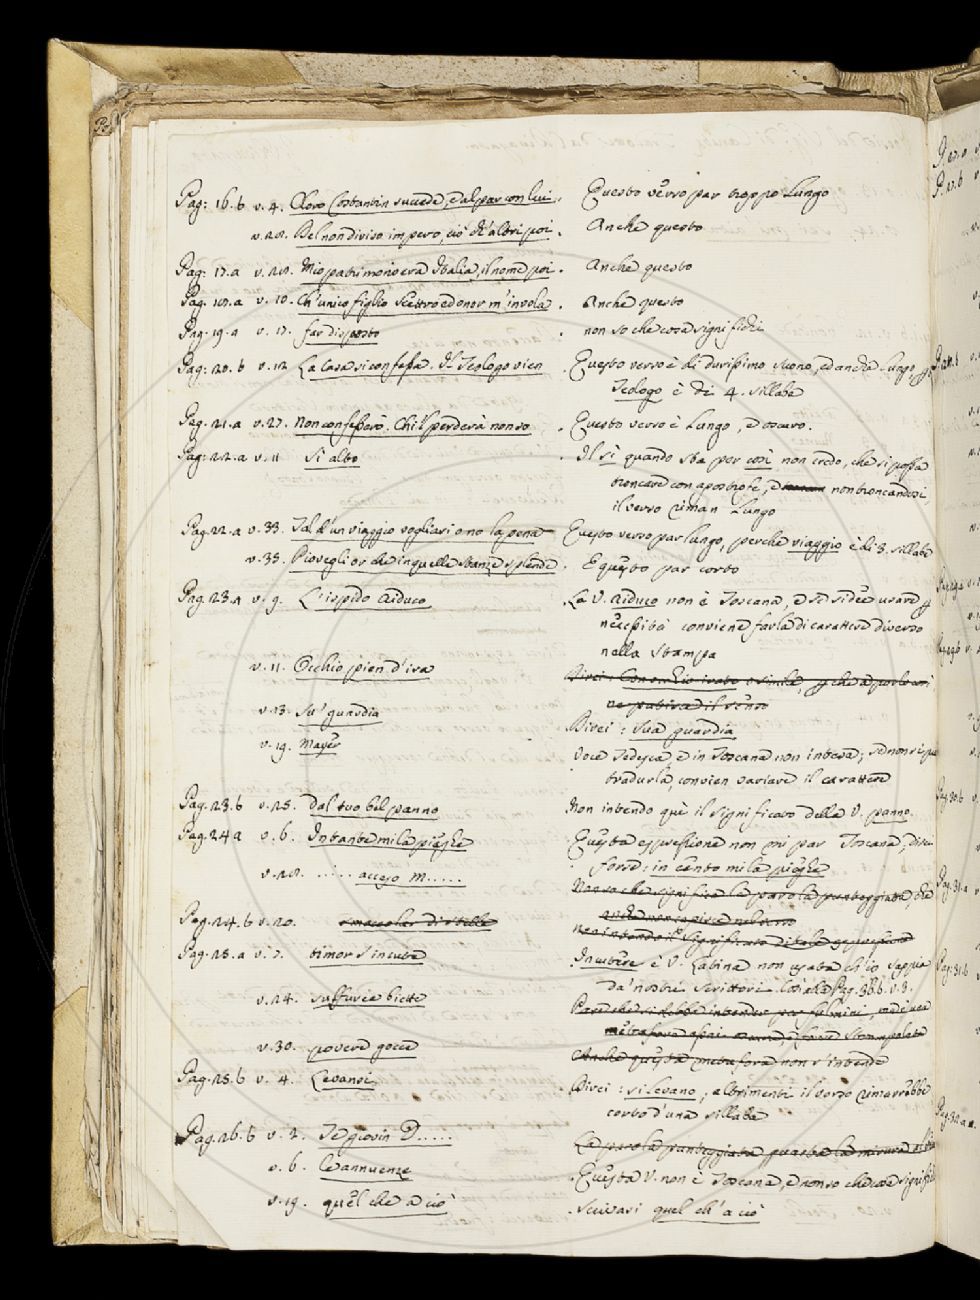 Pag: 16.b v. 4. Cloro Costantin succede, e dal par con lui. Questo verso par troppo lungo
v.28. Bel non diviso impero, ciò ch'altri poi. Anche questo
Pag: 17.a v.28. Mio patrimonio era Italia, il nome poi. Anche questo
Pag: 18.a v. 10. Ch'unico figlio scettro ed onor m'invola. Anche questo
Pag. 19.a v. 17. far disposto. non so che cosa significhi
Pag: 20.b v. 12 La Casa si confessa. Il Teologo vien. Questo verso è di durissimo suono, ed anche lungo,
Teologo è di 4. sillabe
Pag. 21.a v.27. Non confesserò. Chi'l perderà non so. Questo verso è lungo, ed oscuro.
Pag: 22.a v. 11 Sì alto. Il sì quando sta per così non credo, che si possa
troncare con apostrofe, e non troncandosi,
il verso riman lungo
Pag. 22.a v. 33. Tal d'un viaggio vogliari o no la pena Questo verso par lungo, perche viaggio è di 3. sillabe
v. 35. Piovegli or che in quelle stanze splende. E questo par corto
Pag. 23.a v. 9. L'ispido riduco. La V. riduco non è Toscana, e se si dee usare
necessità conviene farla di carattere diverso
nella stampa
v. 11. Occhio pien d'ira
ne pativa il senso
v.13. Su' guardia Direi: sua guardia
v. 19. Mayer Voce Tedesca, e in Toscana non intesa; se non si può
tradurla, convien variare il carattere
Pag. 23.b v.25. dal tuo bel panno Non intendo què il significato della V. panno.
Pag. 24.a v. 6. In tante mila pieghe. Questa espressione non mi par Toscana; direi
forse: in cento mila pieghe
v.28. ..... acceso M..... che significa la parola punteggiata, che
Pag. 24.b v.20.
non intendo il significato di tale espressione
Pag. 25.a v. 7. timor s'incute. Incutere è V. Latina non usata ch'io sappia
da' nostri Scrittori. Così alla Pag. 38.b. v. 3.
v. 24. sulfuree biette Pare che si debba intender per fulmini,
v. 30. povere gocce Anche questa metafora non s'intende
Pag. 25.b v. 4. Levansi. Direi: si levano, altrimenti il verso rimarrebbe
corto d'una sillaba
Pag. 26.b v. 2. Te giovin D..... La parola punteggiata guasta la misura
v. 6. le annuenze. Questa V. non è Toscana, e non so che cosa significhi
v. 19. quel che a ciò. Scrivasi quel ch'a ciò